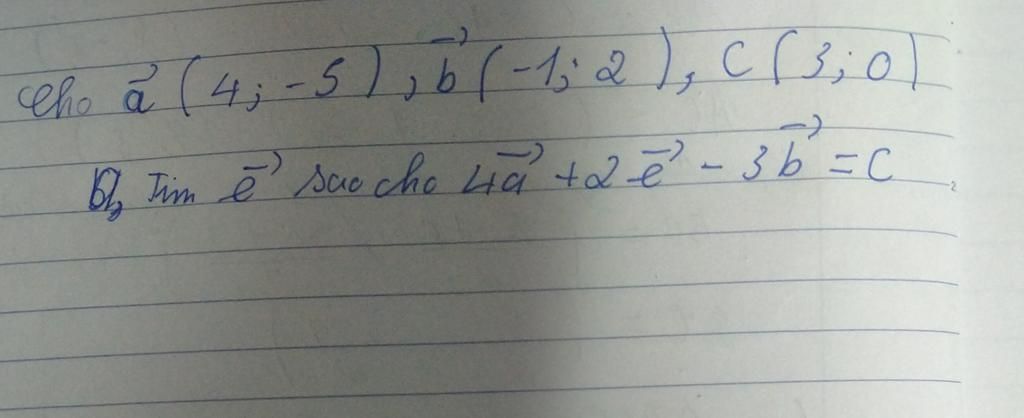 Cho a⃗ (4; -5), b⃗ (-1; 2), C (3; 0)
b, Tìm e⃗ sao cho 4a⃗ + 2e⃗ - 3b⃗ = C